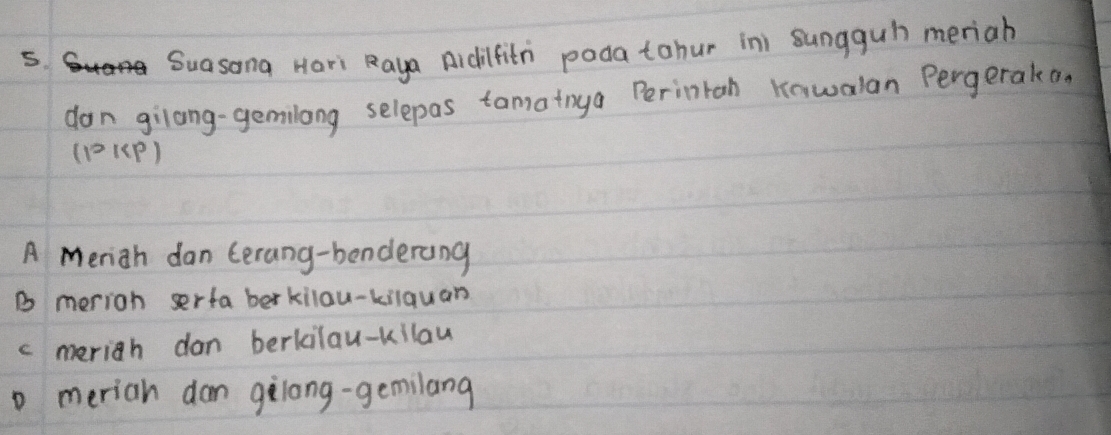 5. Suana Suasana Hari Raya Aidilfitri pada tahun ini sungguh meriah
dan gilang-gemilang selepas tamatnya Perintah Kawalan Pergerakan
(PKP)
A Meriah dan terang-benderang
B meriah serta berkilau-kilauan
C meriah dan berkilau-kilau
D meriah dan gilang-gemilang